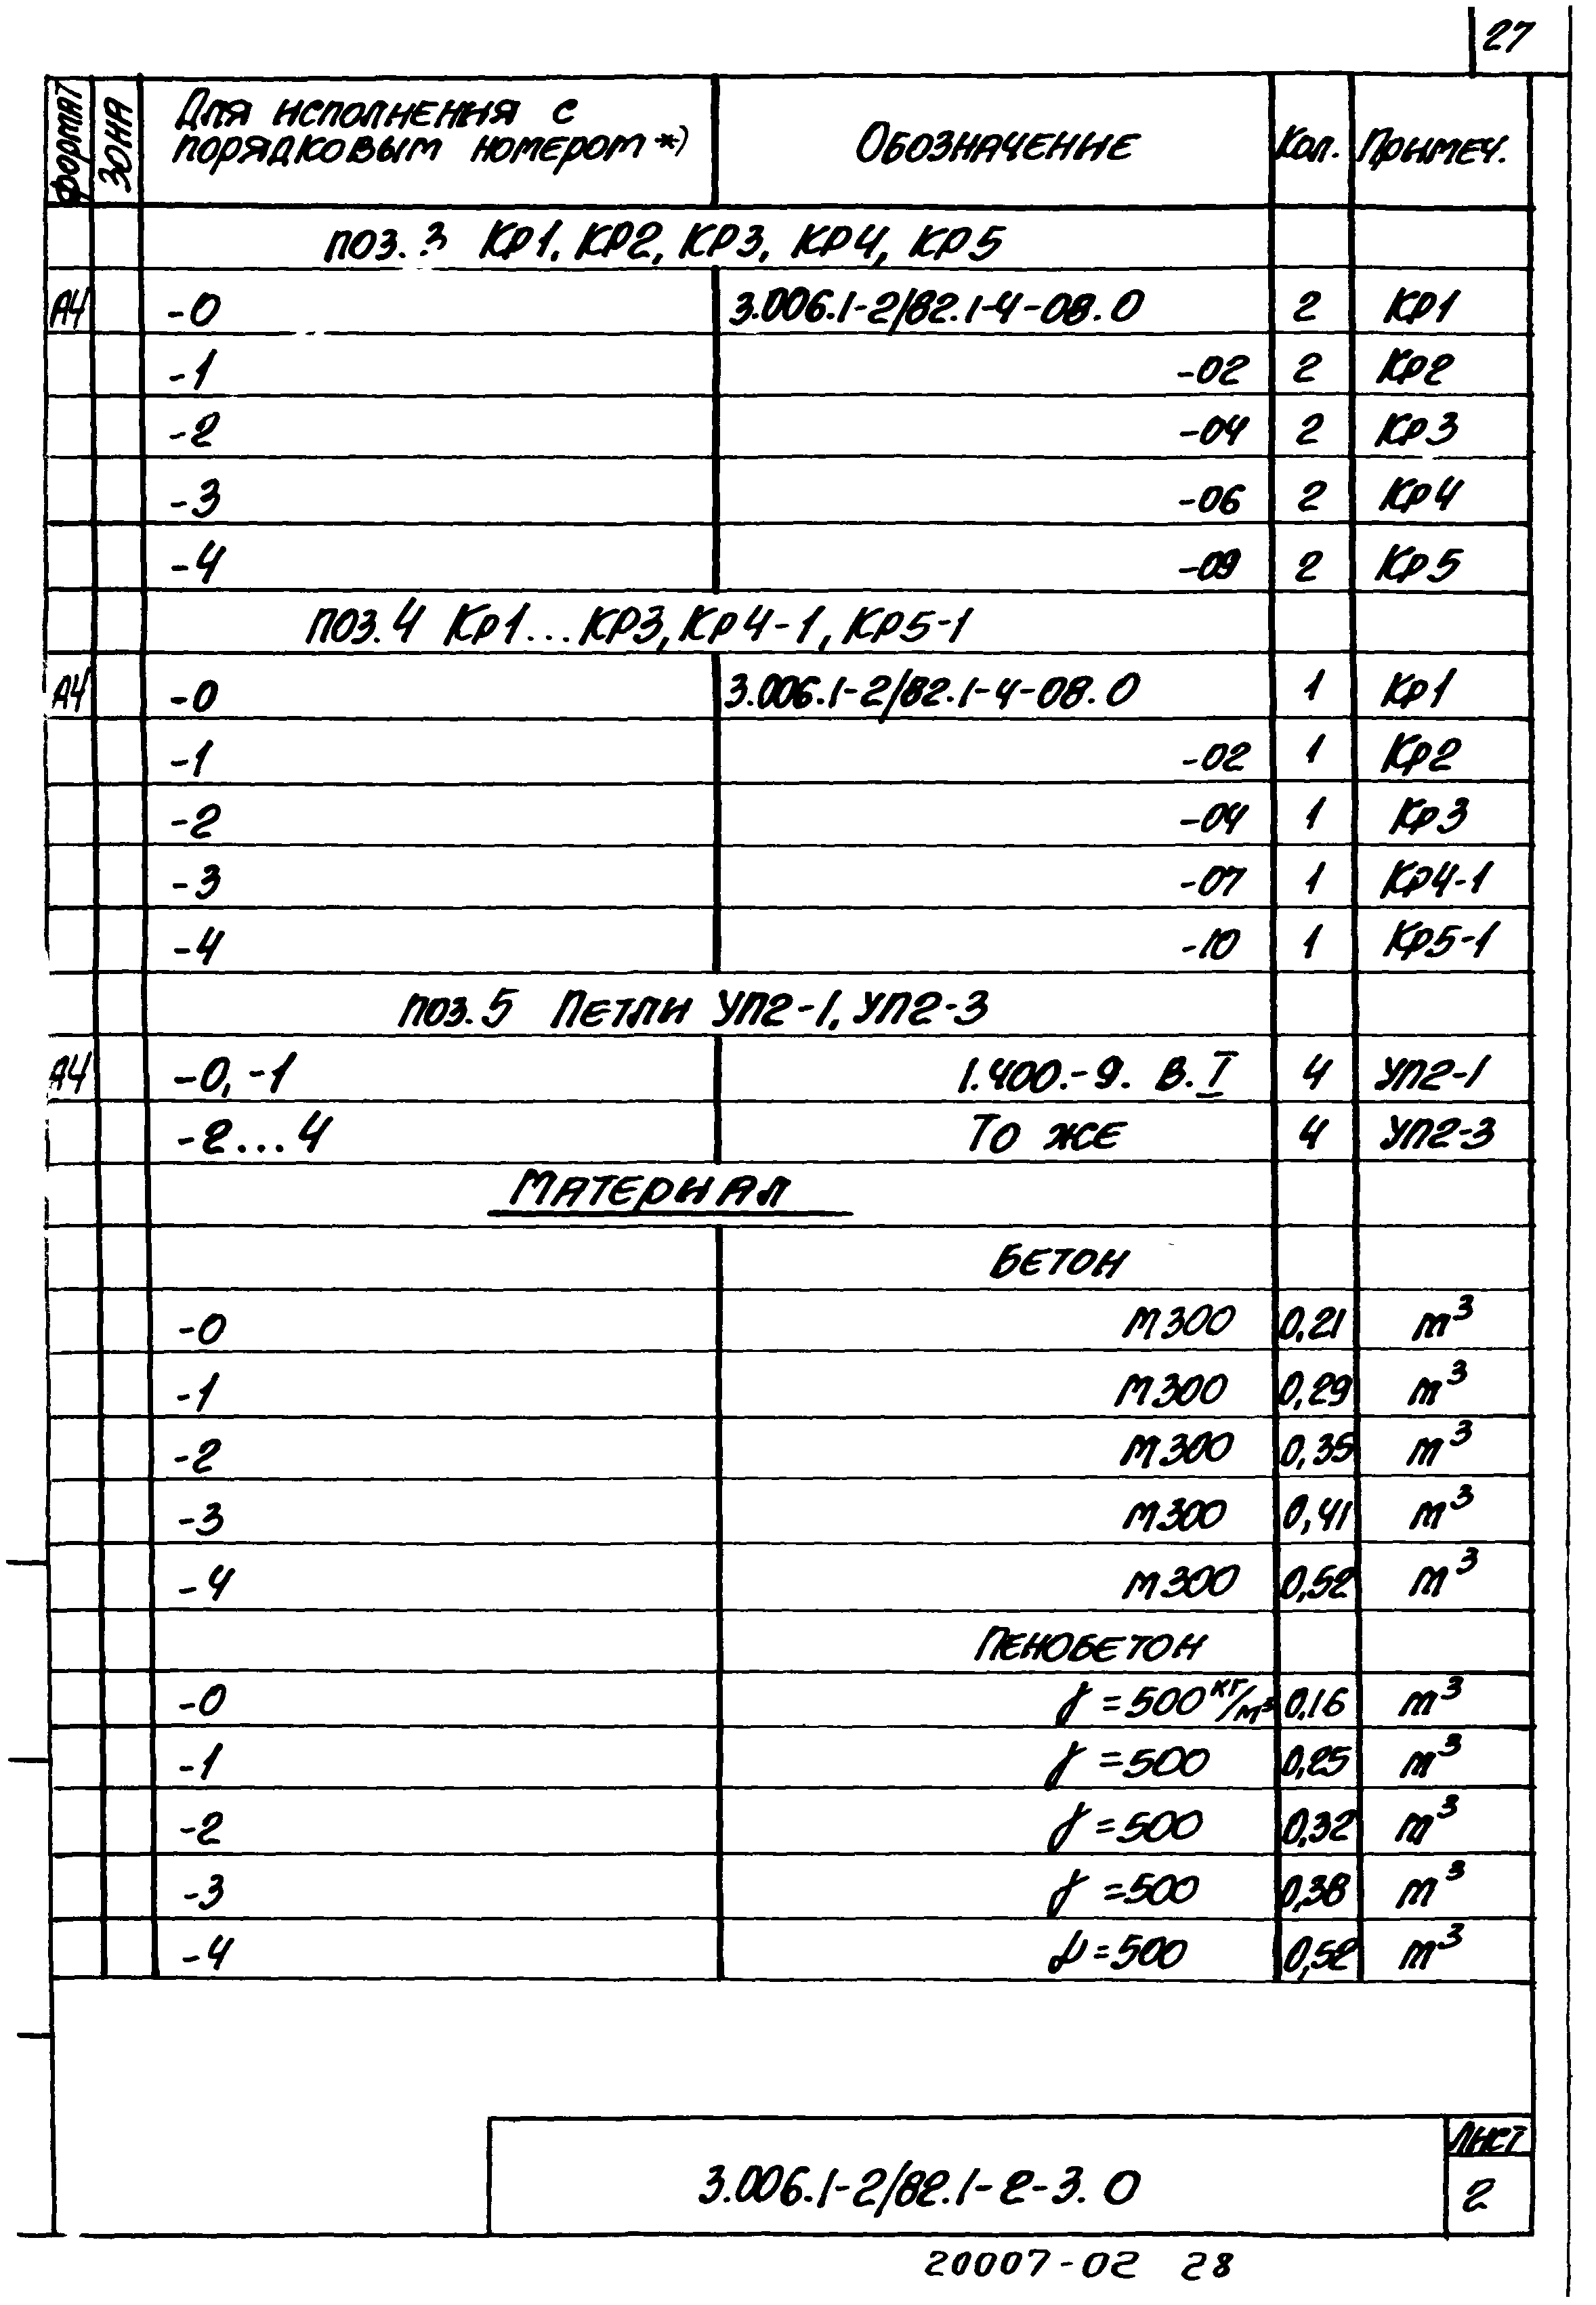 27
Формат Зона Для исполнения с порядковым номером *) Обозначение Кол. Примеч.
поз. 3 Кр1, Кр2, Кр3, Кр4, Кр5
А4 -0 3.006.1-2/82.1-4-08.0 2 Кр1
-1 -02 2 Кр2
-2 -04 2 Кр3
-3 -06 2 Кр4
-4 -09 2 Кр5
поз. 4 Кр1...Кр3, Кр4-1, Кр5-1
А4 -0 3.006.1-2/82.1-4-08.0 1 Кр1
-1 -02 1 Кр2
-2 -04 1 Кр3
-3 -07 1 Кр4-1
-4 -10 1 Кр5-1
поз. 5 Петли УП2-1, УП2-3
А4 -0, -1 1.400.-9. В. I 4 УП2-1
-2...4 То же 4 УП2-3
Материал
Бетон
-0 М300 0,21 м³
-1 М300 0,29 м³
-2 М300 0,35 м³
-3 М300 0,41 м³
-4 М300 0,52 м³
Пенобетон
-0 γ=500 кг/м³ 0,16 м³
-1 γ=500 0,25 м³
-2 γ=500 0,32 м³
-3 γ=500 0,38 м³
-4 γ=500 0,52 м³
3.006.1-2/82.1-2-3.0
Лист
2
20007-02 28